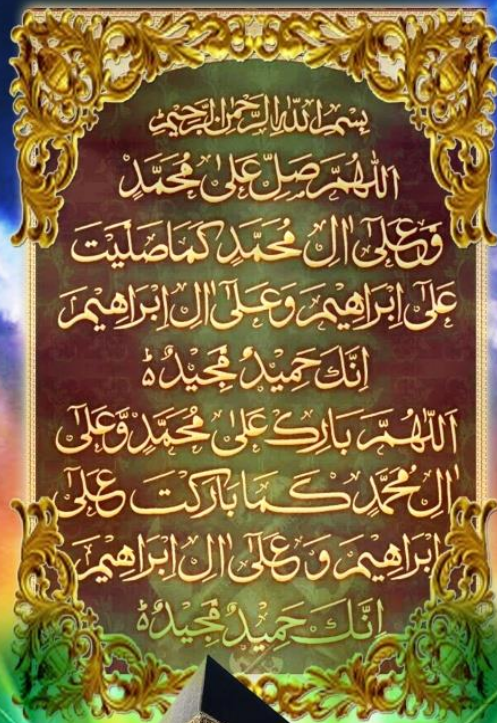 بِسْمِ اللهِ الرَّحْمٰنِ الرَّحِيْمِ
اَللّٰهُمَّ صَلِّ عَلٰى مُحَمَّدٍ
وَّعَلٰٓى اٰلِ مُحَمَّدٍ كَمَا صَلَّيْتَ
عَلٰٓى اِبْرَاهِيْمَ وَعَلٰٓى اٰلِ اِبْرَاهِيْمَ
اِنَّكَ حَمِيْدٌ مَّجِيْدٌ ہ
اَللّٰهُمَّ بَارِكْ عَلٰى مُحَمَّدٍ وَّعَلٰٓى
اٰلِ مُحَمَّدٍ كَمَا بَارَكْتَ عَلٰٓى
اِبْرَاهِيْمَ وَ عَلٰٓى اٰلِ اِبْرَاهِيْمَ
اِنَّكَ حَمِيْدٌ مَّجِيْدٌ ہ